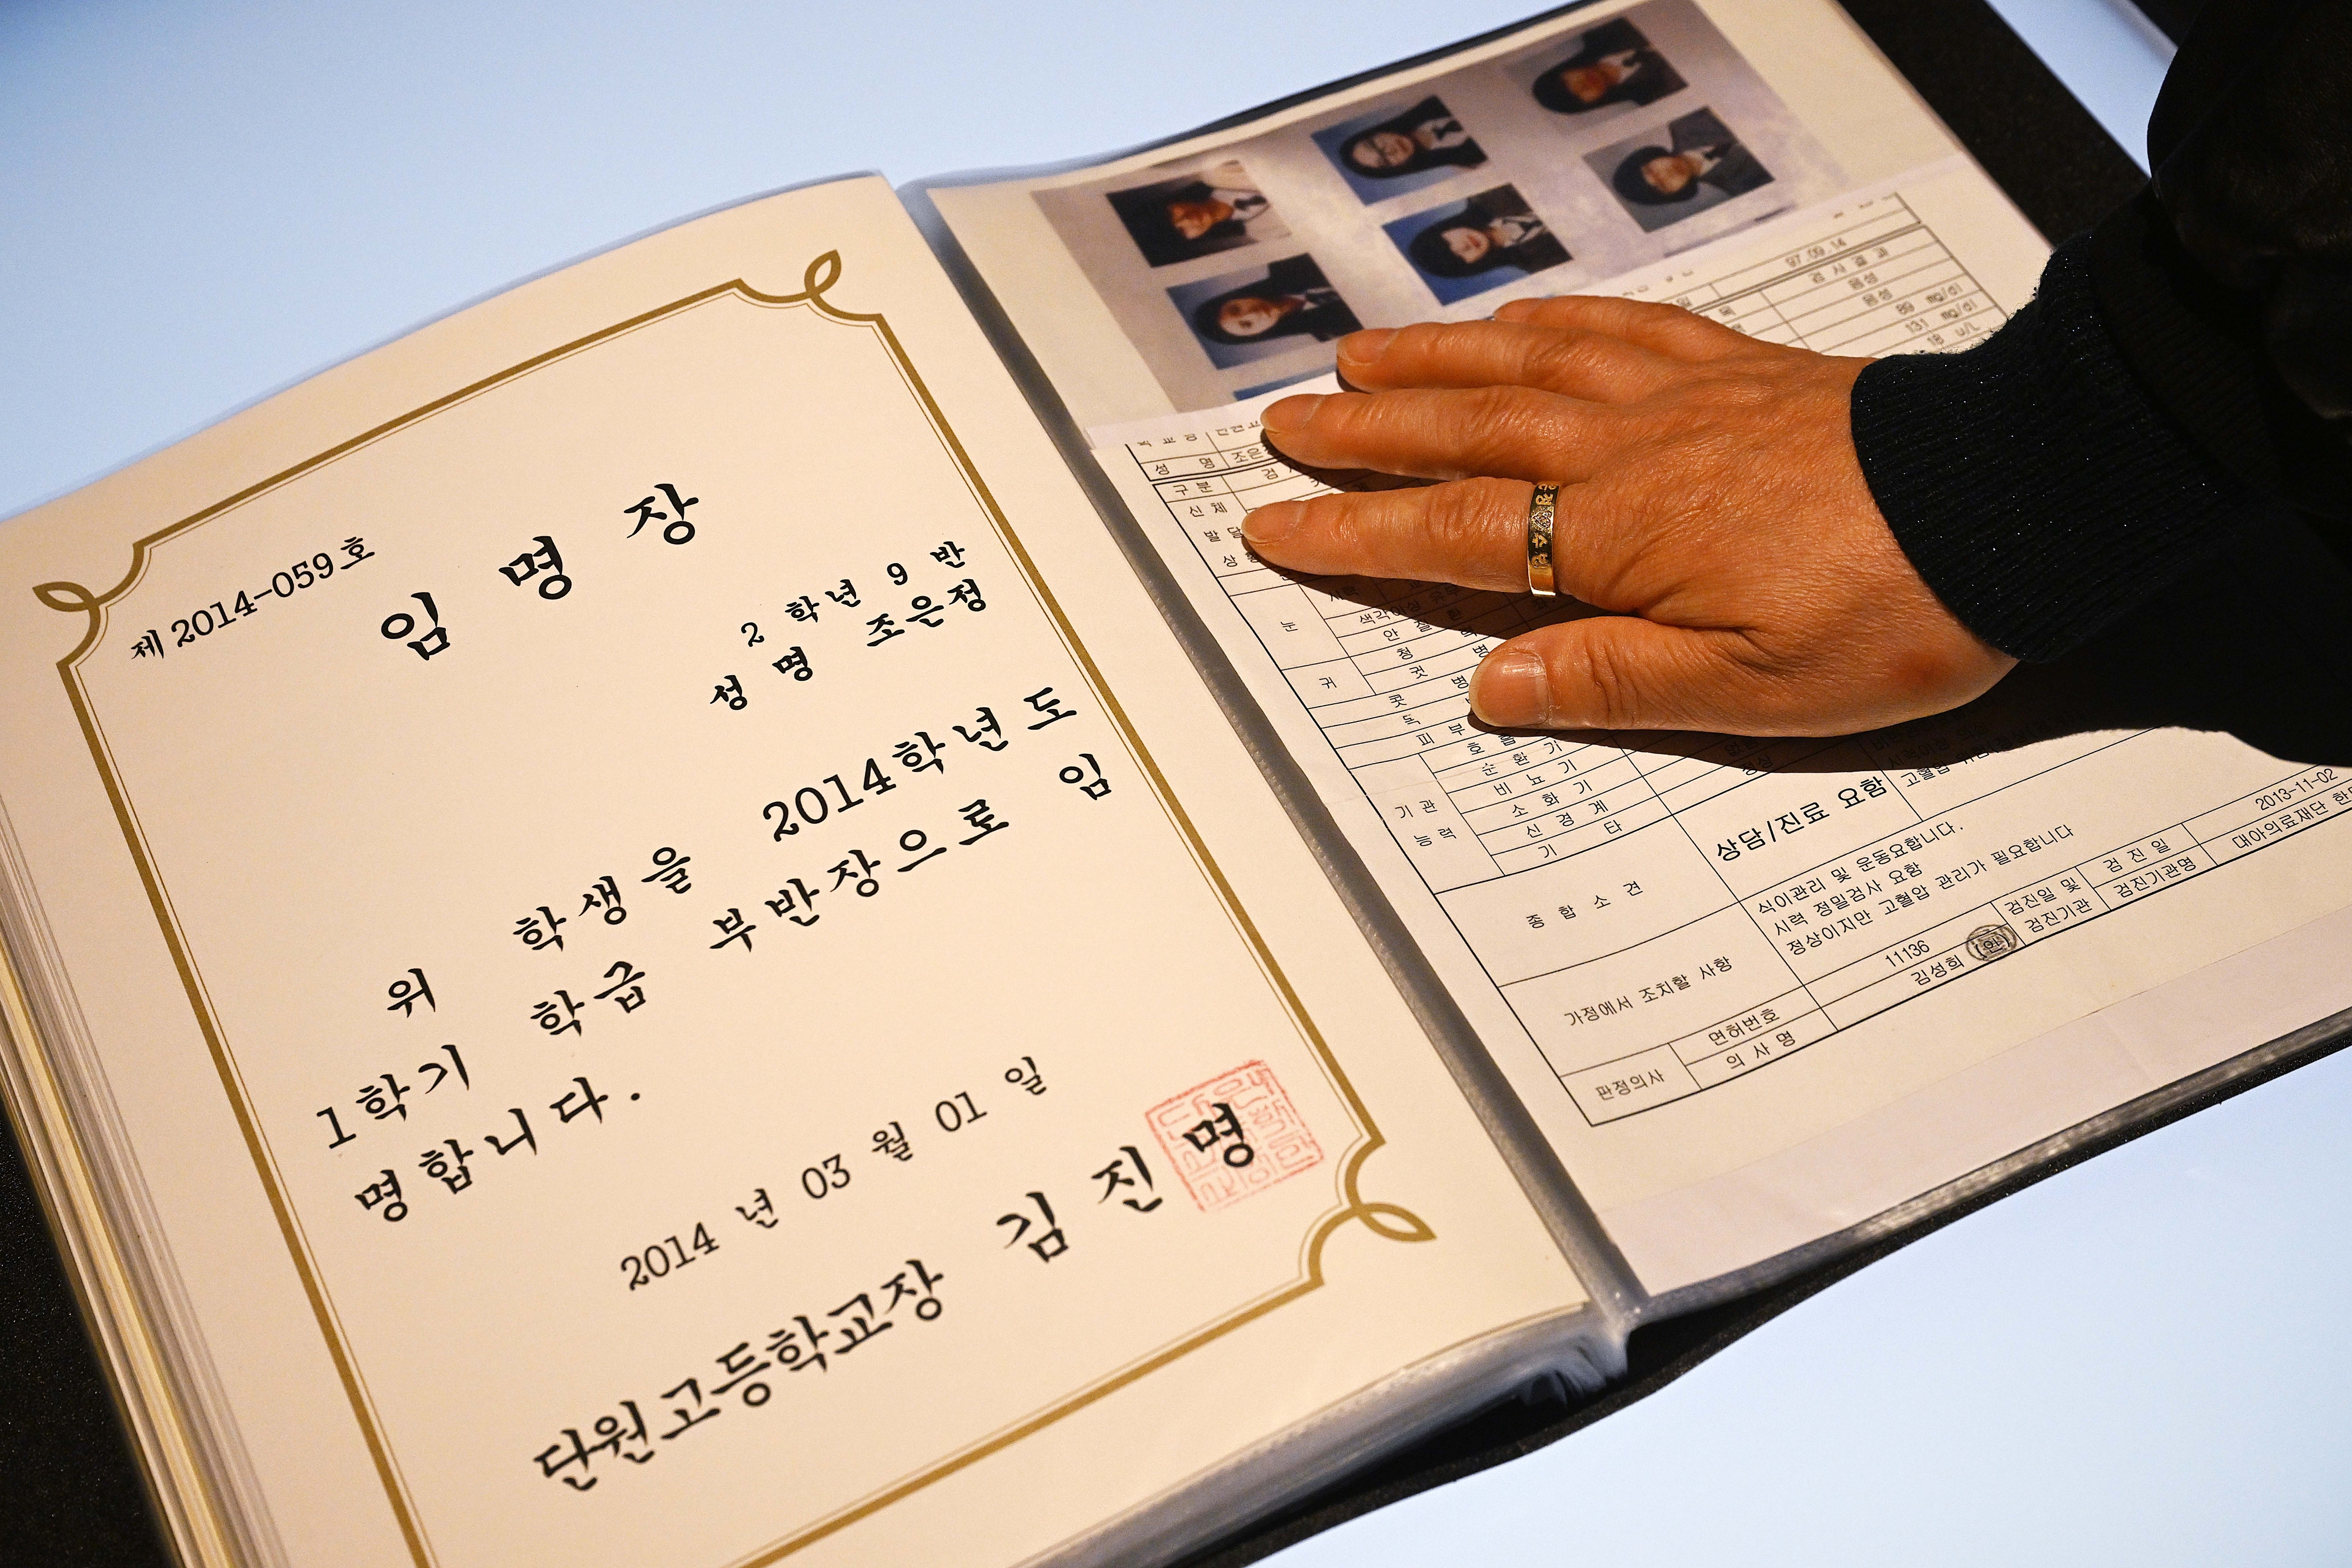 제 2014-059 호
임 명 장
2 학년 9 반
성 명 조은정
위 학생을 2014학년도
1학기 학급 부반장으로 임
명합니다.
2014 년 03 월 01 일
단원고등학교장 김 진 명
97.09.14
검 사 결 과
음성
음성
89 mg/dl
131 mg/dl
18 u/L
성 명 조은
구 분 검
신 체
발 달
상
눈
색각이상
안 질
귀
청
귓 병
콧 병
목 병
피 부
기 관 능 력
호 흡 기
순 환 기
비 뇨 기
소 화 기
신 경 계
기 타
종 합 소 견
상담/진료 요함
고혈압
가정에서 조치할 사항
식이관리 및 운동요합니다.
시력 정밀검사 요함
정상이지만 고혈압 관리가 필요합니다
판정의사
면허번호 11136
의 사 명 김성희 (인)
검진일 및 검진기관
검 진 일 2013-11-02
검진기관명 대아의료재단 한